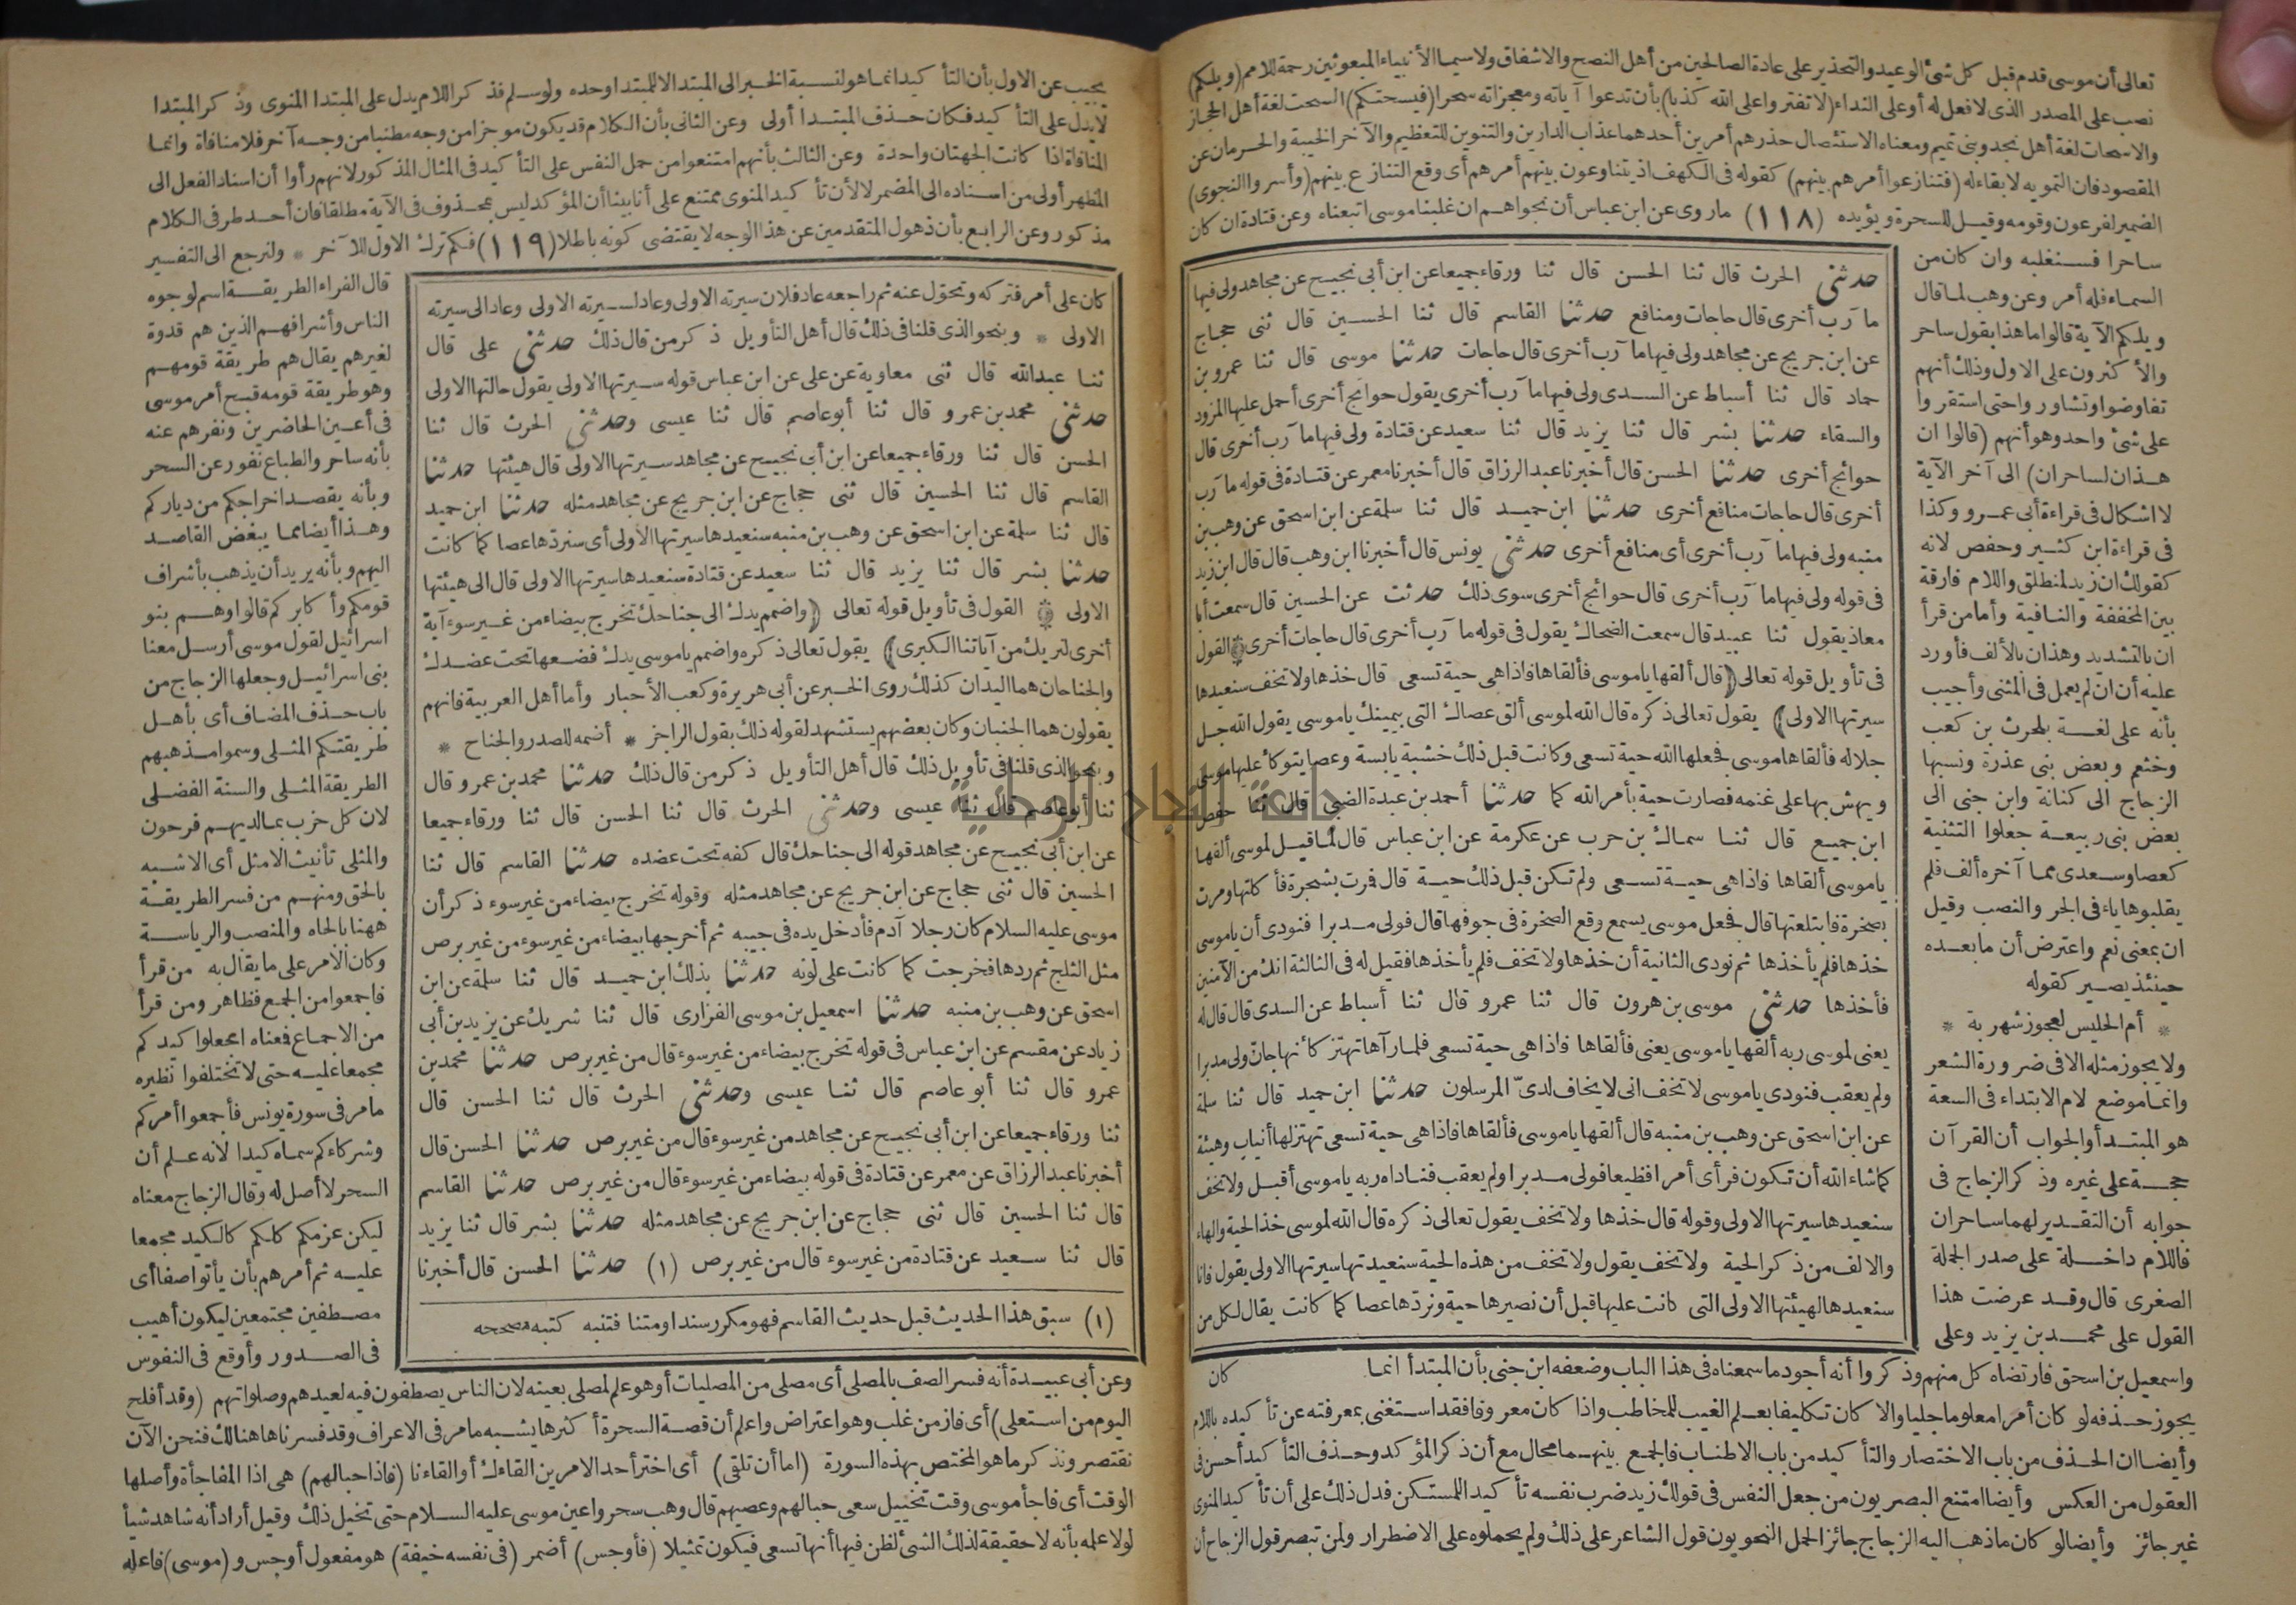 تعالى أن موسى قدم قبل كل شئ الوعيد والتحذير على عادة الصالحين من أهل النصح والاشفاق ولا سيما الأنبياء المبعوثين رحمة للامم (ويلكم)
نصب على المصدر الذى لا فعل له أو على النداء (لا تفتروا على الله كذبا) بأن تدعوا آياته ومعجزاته سحرا (فيسحتكم) السحت لغة أهل الحجاز
والاسحات لغة أهل نجد وبنى تميم ومعناه الاستئصال حذرهم أمرين أحدهما عذاب الدارين والتنوين للتعظيم والآخر الخيبة والحرمان عن
المقصود فان التمويه لا بقاء له (فتنازعوا أمرهم بينهم) كقوله فى الكهف اذ يتنازعون بينهم أمرهم أى وقع التنازع بينهم (وأسروا النجوى)
الضمير لفرعون وقومه وقيل للسحرة ويؤيده (١١٨) ما روى عن ابن عباس أن نجواهم ان غلبنا موسى اتبعناه وعن قتادة ان كان
ساحرا فسنغلبه وان كان من
السماء فله أمر وعن وهب لما قال
ويلكم الآية قالوا ما هذا بقول ساحر
والأكثرون على الاول وذلك أنهم
تفاوضوا وتشاوروا حتى استقروا
على شئ واحد وهو أنهم (قالوا ان
هذان لساحران) الى آخر الآية
لا اشكال فى قراءة أبى عمرو وكذا
فى قراءة ابن كثير وحفص لانه
كقولك ان زيد لمنطلق واللام فارقة
بين المخففة والنافية وأما من قرأ
ان بالتشديد وهذان بالألف فأورد
عليه أن ان لم يعمل فى المثنى وأجيب
بأنه على لغة بلحرث بن كعب
وخثعم وبعض بنى عذرة ونسبها
الزجاج الى كنانة وابن جنى الى
بعض بنى ربيعة جعلوا التثنية
كعصا وسعدى مما آخره ألف فلم
يقلبوها ياء فى الجر والنصب وقيل
ان بمعنى نعم واعترض أن ما بعده
حينئذ يصير كقوله
* أم الحليس لعجوز شهربة *
ولا يجوز مثله الا فى ضرورة الشعر
وانما موضع لام الابتداء فى السعة
هو المبتدأ والجواب أن القرآن
حجة على غيره وذكر الزجاج فى
جوابه أن التقدير لهما ساحران
فاللام داخلة على صدر الجملة
الصغرى قال وقد عرضت هذا
القول على محمد بن يزيد وعلى
حدثنى الحرث قال ثنا الحسن قال ثنا ورقاء جميعا عن ابن أبى نجيح عن مجاهد ولى فيها
مآرب أخرى قال حاجات ومنافع حدثنا القاسم قال ثنا الحسين قال ثنى حجاج
عن ابن جريج عن مجاهد ولى فيها مآرب أخرى قال حاجات حدثنا موسى قال ثنا عمرو بن
حماد قال ثنا أسباط عن السدى ولى فيها مآرب أخرى يقول حوائج أخرى أحمل عليها المزود
والسقاء حدثنا بشر قال ثنا يزيد قال ثنا سعيد عن قتادة ولى فيها مآرب أخرى قال
حوائج أخرى حدثنا الحسن قال أخبرنا عبد الرزاق قال أخبرنا معمر عن قتادة فى قوله مآرب
أخرى قال حاجات منافع أخرى حدثنا ابن حميد قال ثنا سلمة عن ابن اسحق عن وهب بن
منبه ولى فيها مآرب أخرى أى منافع أخرى حدثنى يونس قال أخبرنا ابن وهب قال قال ابن زيد
فى قوله ولى فيها مآرب أخرى قال حوائج أخرى سوى ذلك حدثت عن الحسين قال سمعت أبا
معاذ يقول ثنا عبيد قال سمعت الضحاك يقول فى قوله مآرب أخرى قال حاجات أخرى ۞ القول
فى تأويل قوله تعالى (قال ألقها يا موسى فألقاها فاذا هى حية تسعى قال خذها ولا تخف سنعيدها
سيرتها الاولى) يقول تعالى ذكره قال الله لموسى ألق عصاك التى بيمينك يا موسى يقول الله جل
جلاله فألقاها موسى فجعلها الله حية تسعى وكانت قبل ذلك خشبة يابسة وعصا يتوكأ عليها موسى
ويهش بها على غنمه فصارت حية بأمر الله كما حدثنا أحمد بن عبدة الضبى قال ثنا حفص
ابن جميع قال ثنا سماك بن حرب عن عكرمة عن ابن عباس قال لما قيل لموسى ألقها
يا موسى ألقاها فاذا هى حية تسعى ولم تكن قبل ذلك حية قال فمرت بشجرة فأكلتها ومرت
بصخرة فابتلعتها قال فجعل موسى يسمع وقع الصخرة فى جوفها قال فولى مدبرا فنودى أن يا موسى
خذها فلم يأخذها ثم نودى الثانية أن خذها ولا تخف فلم يأخذها فقيل له فى الثالثة انك من الآمنين
فأخذها حدثنى موسى بن هرون قال ثنا عمرو قال ثنا أسباط عن السدى قال قال له
يعنى لموسى ربه ألقها يا موسى يعنى فألقاها فاذا هى حية تسعى فلما رآها تهتز كأنها جان ولى مدبرا
ولم يعقب فنودى يا موسى لا تخف انى لا يخاف لدىّ المرسلون حدثنا ابن حميد قال ثنا سلمة
عن ابن اسحق عن وهب بن منبه قال ألقها يا موسى فألقاها فاذا هى حية تسعى تهتز لها أنياب وهيئة
كما شاء الله أن تكون فرأى أمرا فظيعا فولى مدبرا ولم يعقب فناداه ربه يا موسى أقبل ولا تخف
سنعيدها سيرتها الاولى وقوله قال خذها ولا تخف يقول تعالى ذكره قال الله لموسى خذ الحية والهاء
والالف من ذكر الحية ولا تخف يقول ولا تخف من هذه الحية سنعيدها سيرتها الاولى يقول فانا
سنعيدها لهيئتها الاولى التى كانت عليها قبل أن نصيرها حية ونردّها عصا كما كانت يقال لكل من
كان
واسمعيل بن اسحق فارتضاه كل منهم وذكروا أنه أجود ما سمعناه فى هذا الباب وضعفه ابن جنى بأن المبتدأ انما
يجوز حذفه لو كان أمرا معلوما جليا والا كان تكليفا بعلم الغيب للمخاطب واذا كان معروفا فقد استغنى بمعرفته عن تأكيده باللام
وأيضا ان الحذف من باب الاختصار والتأكيد من باب الاطناب فالجمع بينهما محال مع أن ذكر المؤكد وحذف التأكيد أحسن فى
العقول من العكس وأيضا امتنع البصريون من جعل النفس فى قولك زيد ضرب نفسه تأكيدا للمستكن فدل ذلك على أن تأكيد المنوى
غير جائز وأيضا لو كان ما ذهب اليه الزجاج جائزا لحمل النحويون قول الشاعر على ذلك ولم يحملوه على الاضطرار ولمن تبصر قول الزجاج أن
يجيب عن الاول بأن التأكيد انما هو لنسبة الخبر الى المبتدا لا للمبتدا وحده ولو سلم فذكر اللام يدل على المبتدا المنوى وذكر المبتدا
لا يدل على التأكيد فكان حذف المبتدا أولى وعن الثانى بأن الكلام قد يكون موجزا من وجه مطنبا من وجه آخر فلا منافاة وانما
المنافاة اذا كانت الجهتان واحدة وعن الثالث بأنهم امتنعوا من حمل النفس على التأكيد فى المثال المذكور لانهم رأوا أن اسناد الفعل الى
المظهر أولى من اسناده الى المضمر لا لأن تأكيد المنوى ممتنع على أنا بينا أن المؤكد ليس بمحذوف فى الآية مطلقا فان أحد طرفى الكلام
مذكور وعن الرابع بأن ذهول المتقدمين عن هذا الوجه لا يقتضى كونه باطلا (١١٩) فكم ترك الاول للآخر * ولنرجع الى التفسير
كان على أمر فتركه وتحوّل عنه ثم راجعه عاد فلان سيرته الاولى وعاد لسيرته الاولى وعاد الى سيرته
الاولى * وبنحو الذى قلنا فى ذلك قال أهل التأويل ذكر من قال ذلك حدثنى على قال
ثنا عبد الله قال ثنى معاوية عن على عن ابن عباس قوله سيرتها الاولى يقول حالتها الاولى
حدثنى محمد بن عمرو قال ثنا أبو عاصم قال ثنا عيسى وحدثنى الحرث قال ثنا
الحسن قال ثنا ورقاء جميعا عن ابن أبى نجيح عن مجاهد سيرتها الاولى قال هيئتها حدثنا
القاسم قال ثنا الحسين قال ثنى حجاج عن ابن جريج عن مجاهد مثله حدثنا ابن حميد
قال ثنا سلمة عن ابن اسحق عن وهب بن منبه سنعيدها سيرتها الاولى أى سنردّها عصا كما كانت
حدثنا بشر قال ثنا يزيد قال ثنا سعيد عن قتادة سنعيدها سيرتها الاولى قال الى هيئتها
الاولى ۞ القول فى تأويل قوله تعالى (واضمم يدك الى جناحك تخرج بيضاء من غير سوء آية
أخرى لنريك من آياتنا الكبرى) يقول تعالى ذكره واضمم يا موسى يدك فضعها تحت عضدك
والجناحان هما اليدان كذلك روى الخبر عن أبى هريرة وكعب الأحبار وأما أهل العربية فانهم
يقولون هما الجنبان وكان بعضهم يستشهد لقوله ذلك بقول الراجز * أضمه للصدر والجناح *
وبنحو الذى قلنا فى تأويل ذلك قال أهل التأويل ذكر من قال ذلك حدثنا محمد بن عمرو قال
ثنا أبو عاصم قال ثنا عيسى وحدثنى الحرث قال ثنا الحسن قال ثنا ورقاء جميعا
عن ابن أبى نجيح عن مجاهد قوله الى جناحك قال كفه تحت عضده حدثنا القاسم قال ثنا
الحسين قال ثنى حجاج عن ابن جريج عن مجاهد مثله وقوله تخرج بيضاء من غير سوء ذكر أن
موسى عليه السلام كان رجلا آدم فأدخل يده فى جيبه ثم أخرجها بيضاء من غير سوء من غير برص
مثل الثلج ثم ردها فخرجت كما كانت على لونه حدثنا بذلك ابن حميد قال ثنا سلمة عن ابن
اسحق عن وهب بن منبه حدثنا اسمعيل بن موسى الفزارى قال ثنا شريك عن يزيد بن أبى
زياد عن مقسم عن ابن عباس فى قوله تخرج بيضاء من غير سوء قال من غير برص حدثنا محمد بن
عمرو قال ثنا أبو عاصم قال ثنا عيسى وحدثنى الحرث قال ثنا الحسن قال
ثنا ورقاء جميعا عن ابن أبى نجيح عن مجاهد من غير سوء قال من غير برص حدثنا الحسن قال
أخبرنا عبد الرزاق عن معمر عن قتادة فى قوله بيضاء من غير سوء قال من غير برص حدثنا القاسم
قال ثنا الحسين قال ثنى حجاج عن ابن جريج عن مجاهد مثله حدثنا بشر قال ثنا يزيد
قال ثنا سعيد عن قتادة من غير سوء قال من غير برص (١) حدثنا الحسن قال أخبرنا
(١) سبق هذا الحديث قبل حديث القاسم فهو مكرر سندا ومتنا فتنبه كتبه مصححه
قال الفراء الطريقة اسم لوجوه
الناس وأشرافهم الذين هم قدوة
لغيرهم يقال هم طريقة قومهم
وهو طريقة قومه قبح أمر موسى
فى أعين الحاضرين ونفرهم عنه
بأنه ساحر والطباع نفور عن السحر
وبأنه يقصد اخراجكم من دياركم
وهذا أيضا مما يبغض القاصد
اليهم وبأنه يريد أن يذهب بأشراف
قومكم وأكابركم قالوا وهم بنو
اسرائيل لقول موسى أرسل معنا
بنى اسرائيل وجعلها الزجاج من
باب حذف المضاف أى بأهل
طريقتكم المثلى وسموا مذهبهم
الطريقة المثلى والسنة الفضلى
لان كل حزب بما لديهم فرحون
والمثلى تأنيث الامثل أى الاشبه
بالحق ومنهم من فسر الطريقة
ههنا بالجاه والمنصب والرياسة
وكان الأمر على ما يقال به من قرأ
فاجمعوا من الجمع فظاهر ومن قرأ
من الاجماع فمعناه اجعلوا كيدكم
مجمعا عليه حتى لا تختلفوا نظيره
ما مر فى سورة يونس فأجمعوا أمركم
وشركاءكم سماه كيدا لأنه علم أن
السحر لا أصل له وقال الزجاج معناه
ليكن عزمكم كلكم كالكيد مجمعا
عليه ثم أمرهم بأن يأتوا صفا أى
مصطفين مجتمعين ليكون أهيب
فى الصدور وأوقع فى النفوس
وعن أبى عبيدة أنه فسر الصف بالمصلى أى مصلى من المصليات أو هو علم لمصلى بعينه لان الناس يصطفون فيه لعيدهم وصلواتهم (وقد أفلح
اليوم من استعلى) أى فاز من غلب وهو اعتراض واعلم أن قصة السحرة أكثرها يشبه ما مر فى الاعراف وقد فسرناها هنالك فنحن الآن
نقتصر ونذكر ما هو المختص بهذه السورة (اما أن تلقى) أى اختر أحد الامرين القاءك أو القاءنا (فاذا حبالهم) هى اذا المفاجأة وأصلها
الوقت أى فاجأ موسى وقت تخييل سعى حبالهم وعصيهم قال وهب سحروا عين موسى عليه السلام حتى تخيل ذلك وقيل أراد أنه شاهد شيأ
لولا علمه بأنه لا حقيقة لذلك الشئ لظن فيها أنها تسعى فيكون تمثيلا (فأوجس) أضمر (فى نفسه خيفة) هو مفعول أوجس و (موسى) فاعله
جامعة النجاح الوطنية